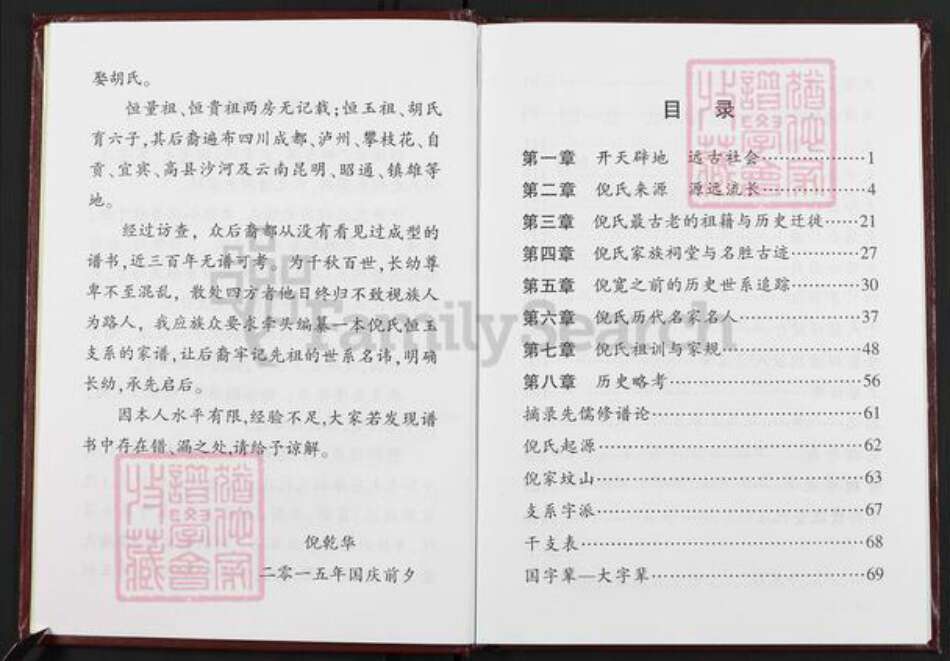 娶胡氏。
恒量祖、恒贵祖两房无记载；恒玉祖、胡氏
育六子，其后裔遍布四川成都、泸州、攀枝花、自
贡、宜宾、高县沙河及云南昆明、昭通、镇雄等
地。
经过访查，众后裔都从没有看见过成型的
谱书，近三百年无谱可考。为千秋百世，长幼尊
卑不至混乱，散处四方者他日终归不致视族人
为路人，我应族众要求牵头编纂一本倪氏恒玉
支系的家谱，让后裔牢记先祖的世系名讳，明确
长幼，承先启后。
因本人水平有限，经验不足，大家若发现谱
书中存在错、漏之处，请给予谅解。
倪乾华
二零一五年国庆前夕
目 录
第一章 开天辟地 远古社会………………1
第二章 倪氏来源 源远流长………………4
第三章 倪氏最古老的祖籍与历史迁徙……21
第四章 倪氏家族祠堂与名胜古迹…………27
第五章 倪宽之前的历史世系追踪…………30
第六章 倪氏历代名家名人…………………37
第七章 倪氏祖训与家规……………………48
第八章 历史略考……………………………56
摘录先儒修谱论………………………………61
倪氏起源………………………………………62
倪家坟山………………………………………63
支系字派………………………………………67
干支表…………………………………………68
国字辈—大字辈………………………………69
FamilySearch